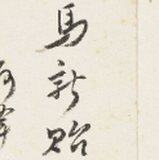 馬新貽